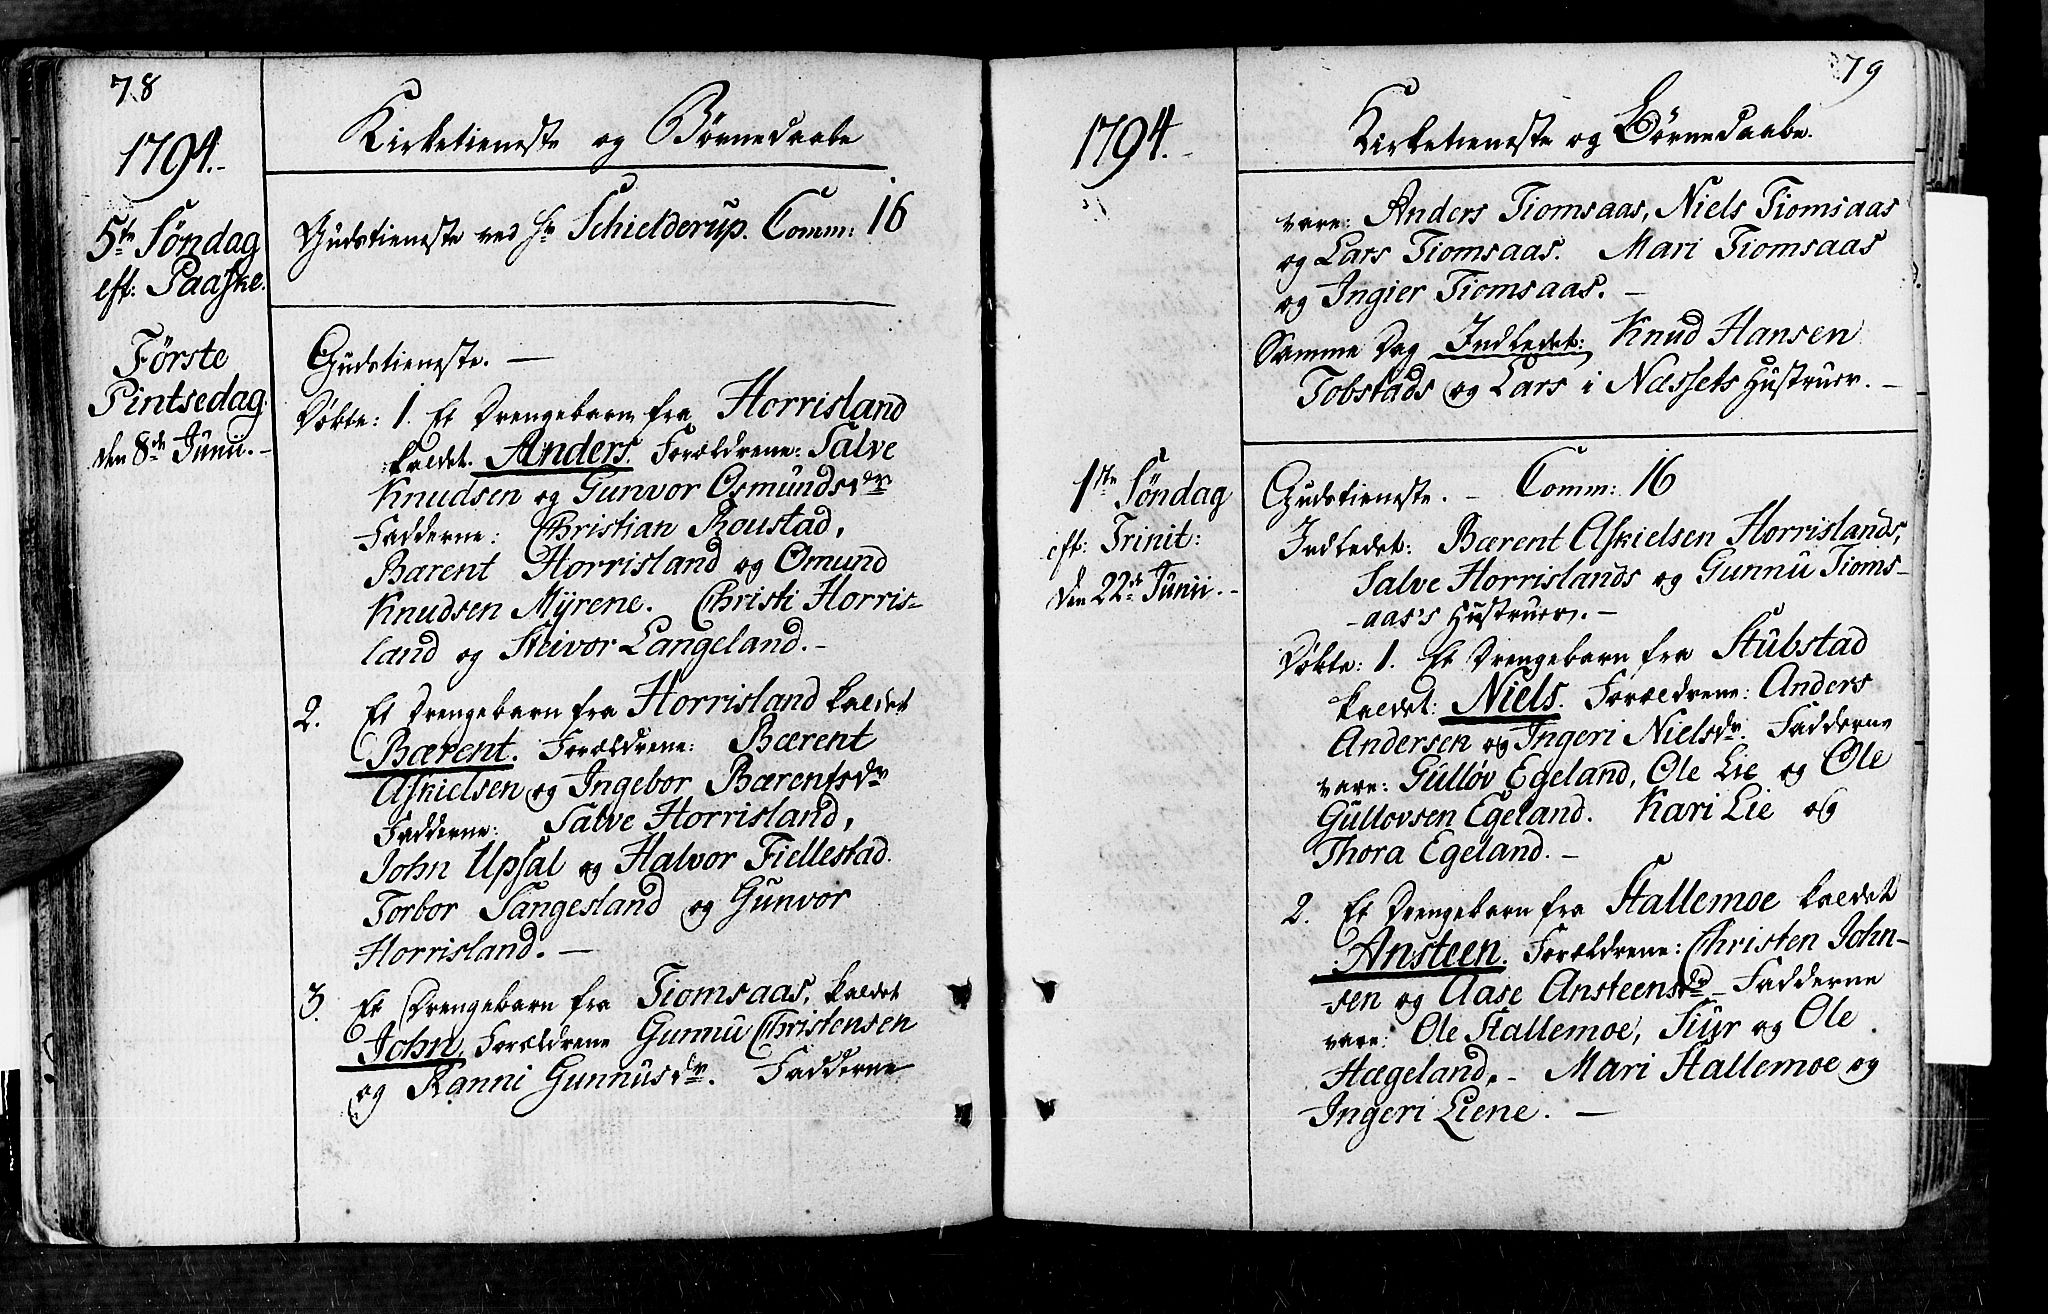 78
1794.
Kirketieneste og Børnedaabe
5te Søndag
eft: Paaske.
Gudstieneste ved Hr Schielderup. Comm: 16
Første
Pintsedag
den 8de Junii.-
Gudstieneste. —
Døbte: 1. Et Drengebarn fra Horrisland
kaldet. Anders. Forældrene: Salve
Knudsen og Gunvor Osmundsdr
Fadderne: Christian Roustad,
Barent Horrisland og Omund
Knudsen Myrene. Christi Horris-
land og Steivor Langeland.-
2. Et Drengebarn fra Horrisland kaldet
Bærent. Forældrene: Bærent
Askielsen og Ingebor Bærentsdr
Fadderne: Salve Horrisland,
John Upsal og Halvor Fiellestad.
Torbor Sangesland og Gunvor
Horrisland. —
3. Et Drengebarn fra Tiomsaas, kaldet
John, Forældrene Gunnu Christensen
og Ranni Gunnusdr. Fadderne
79
1794.
Kirketieneste og Børnedaabe.
vare: Anders Tiomsaas, Niels Tiomsaas
og Lars Tiomsaas. Mari Tiomsaas
og Ingier Tiomsaas. —
Samme Dag Indledet: Knud Hansen
Tobstads og Lars i Næssets Hustruer. -
1ste Søndag
eft: Trinit:
den 22de Junii.-
Gudstieneste. - Comm: 16
Indledet: Bærent Askielsen Horrislands,
Salve Horrislands og Gunnu Tioms-
-aas's Hustruer. -
Døbte: 1. Et Drengebarn fra Stubstad
kaldet: Niels. Forældrene: Anders
Andersen og Ingeri Nielsdr. Fadderne
vare: Gulløv Egeland, Ole Lie og Ole
Gullovsen Egeland. Kari Lie og
Thora Egeland. -
2. Et Drengebarn fra Stallemoe kaldet
Ansteen. Forældrene: Christen John-
-sen og Aase Ansteensdr Fadderne
vare: Ole Stallemoe, Siur og Ole
Hægeland. - Mari Stallemoe og
Ingeri Liene. —